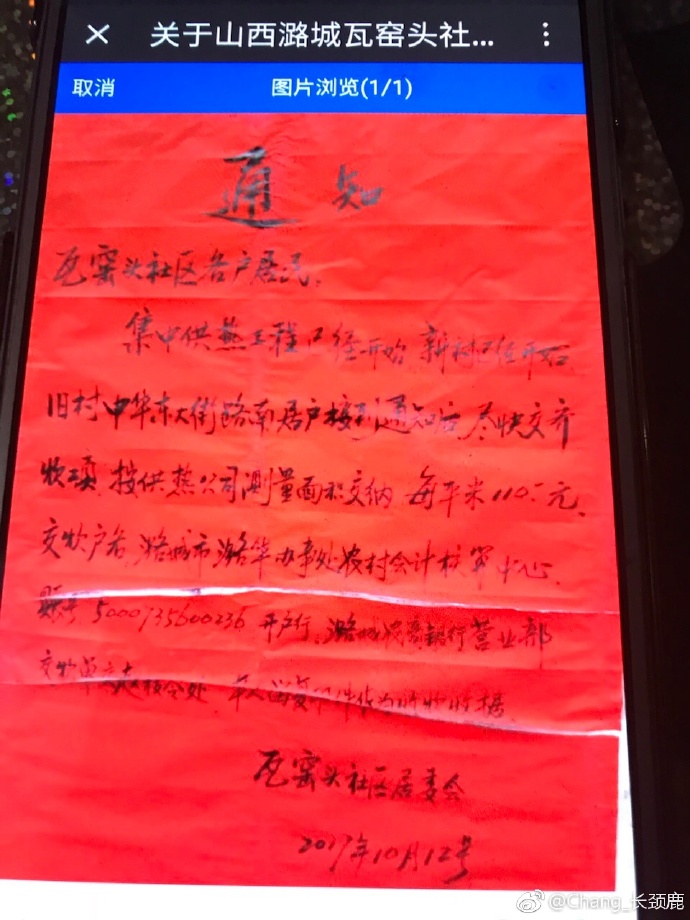 关于山西潞城瓦窑头社...
取消 图片浏览(1/1)
通知
瓦窑头社区各户居民、
集中供热工程已经开始 新村已经开始
旧村中华东大街路南居户接到通知后尽快交齐
按供热公司测量面积交纳 每平米110.元.
交款户名 潞城市潞华办事处农村会计核算中心.
账号5000735600236 开户行、潞城农商银行营业部
瓦窑头社区居委会
2017年10月12号
@Chang_长颈鹿